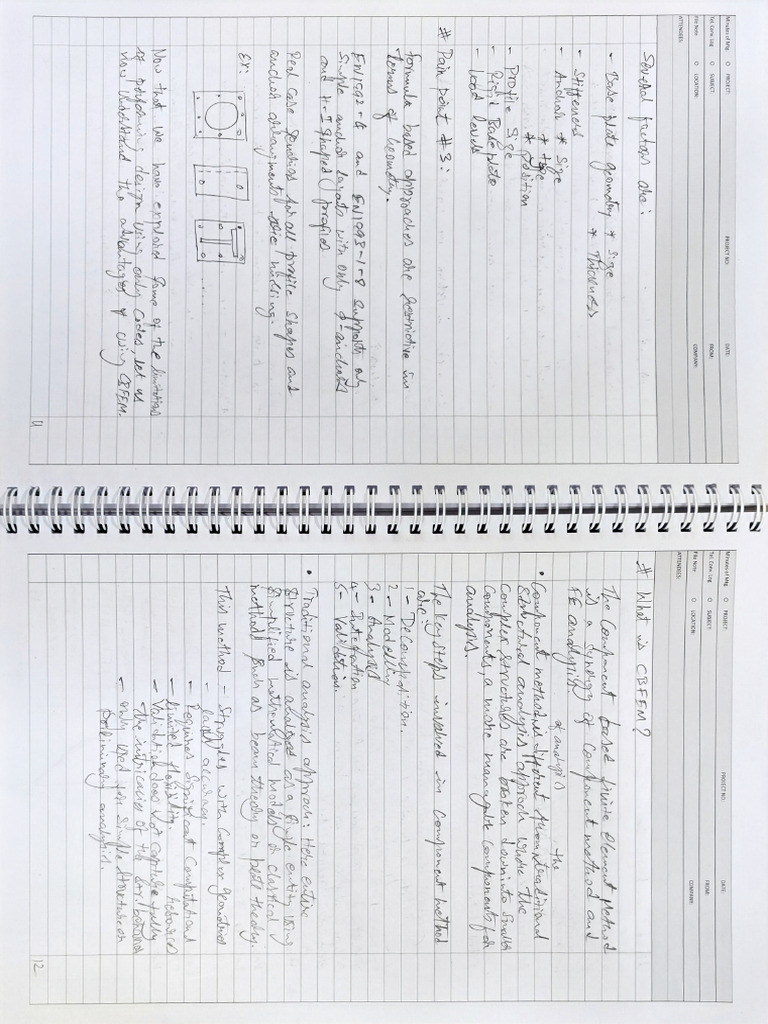 Minutes of Mtg
Tel. Conv. Log
File Note
PROJECT:
SUBJECT:
LOCATION:
ATTENDEES:
PROJECT NO:
DATE:
FROM:
COMPANY:
Several factors are:
- Base plate geometry * Size
* Thickness
- Stiffeners
- Anchor * Size
* type
* Position
- Profile Size
- Rigid Baseplate
- Load levels
# Pain point #3:
Formula based approaches are restrictive in
terms of Geometry.
EN1992-4 and EN1993-1-8 supports only
Simple anchor layouts with only
and H-I shaped profiles
Real case Scenarios for all profile shapes and
anchor arrangments are missing.
Ex:
Now that we have explored some of the limitations
of performing design using only Codes, let us
now understand the advantages of using CBFEM.
Minutes of Mtg
Tel. Conv. Log
File Note
PROJECT:
SUBJECT:
LOCATION:
ATTENDEES:
PROJECT NO:
DATE:
FROM:
COMPANY:
# What is CBFEM?
The Component based finite Element Method
is a Synergy of Component method and
FE analysis.
• Component method of analysis is different from the traditional
Structural analysis approach where the
Complex structures are broken down into smaller
Components, a more managable components for
analysis.
The Key steps involved in Component method
are:
1-
2- Modelling
3- Analysis
4-
5- Validation
• Traditional analysis approach: Here entire
Structure is analyzed as a Single entity using
Simplified mathematical models or classical
method such as beam theory or plate theory.
This method - Struggles with Complex geometries
accuracy.
- Requires Significant Computational
- Limited flexibility.
- Validation does not capture fully
the intricacies of the
- only used for Simple structure or
preliminary analysis.
12